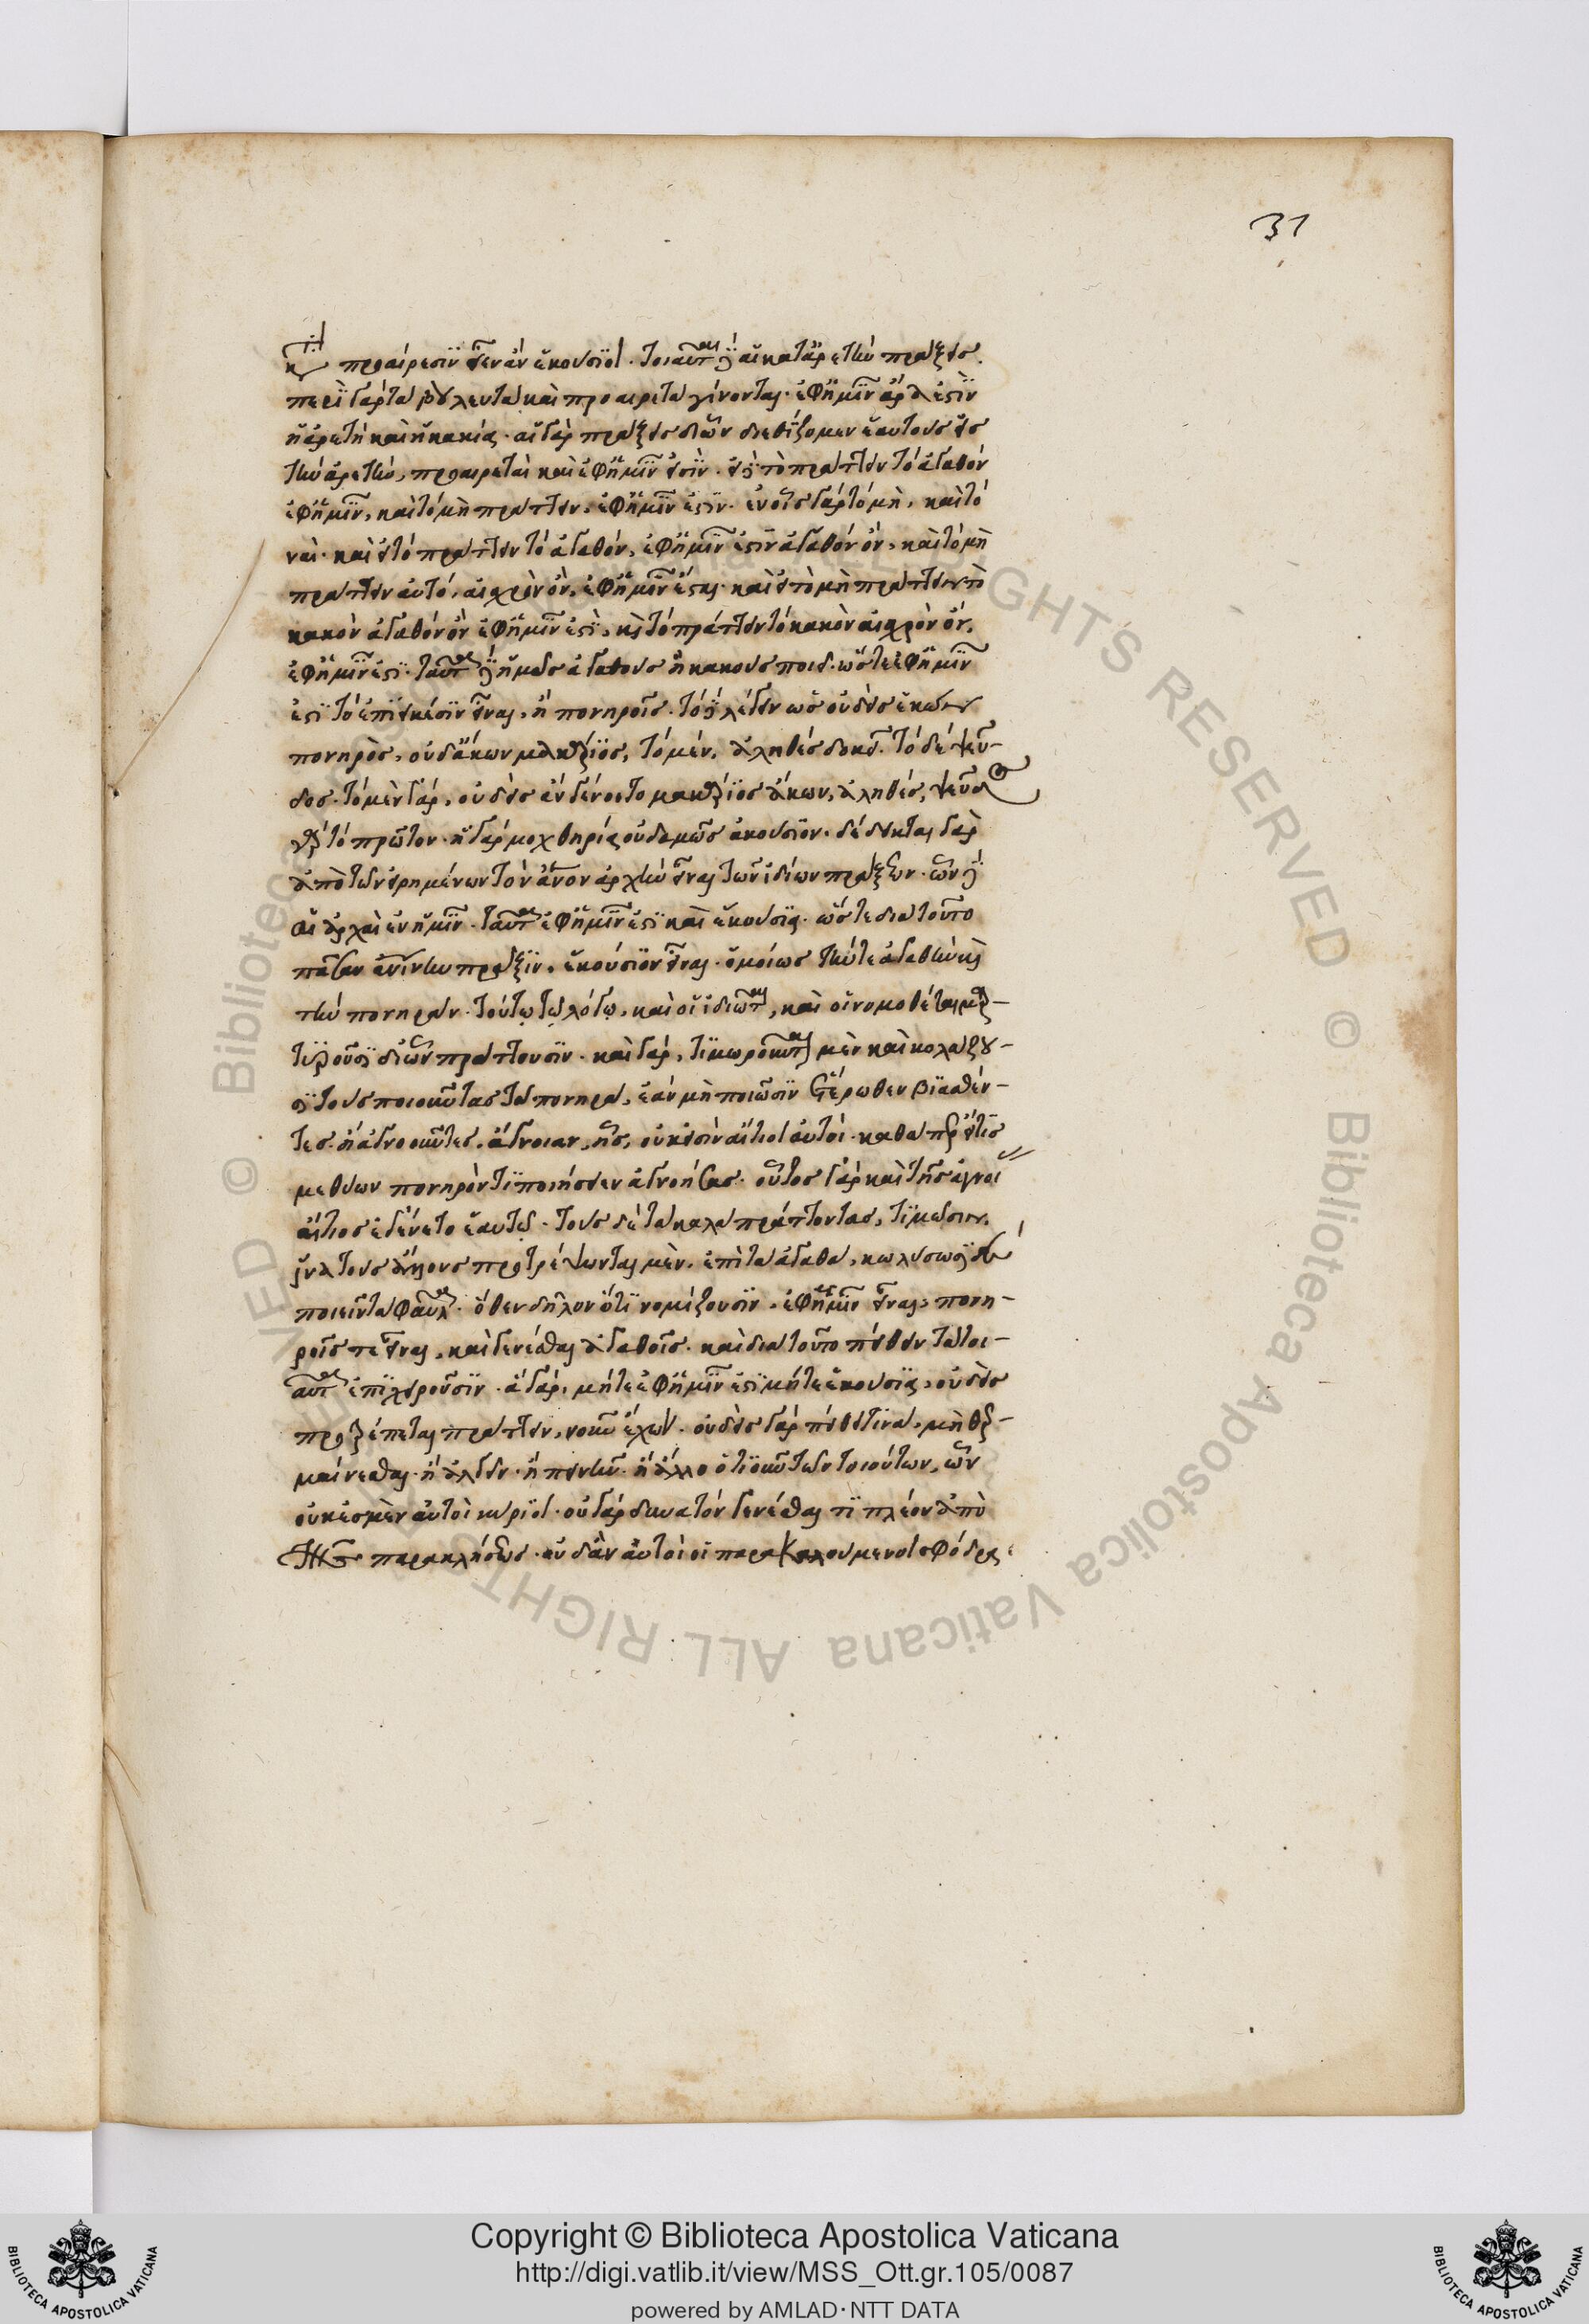 31
κατὰ προαίρεσιν εἶεν ἂν ἑκούσιοι. τοιαῦται δὲ αἱ κατ' ἀρετὴν πράξεις.
περὶ γὰρ τὰ βουλευτὰ καὶ προαιρετὰ γίνονται. ἐφ' ἡμῖν ἄρα ἐστὶν
ἡ ἀρετὴ καὶ ἡ κακία. αἱ γὰρ πράξεις δι' ὧν διεθίζομεν ἑαυτοὺς εἰς
τὴν ἀρετὴν, προαιρεταὶ καὶ ἐφ' ἡμῖν εἰσὶν. εἰ δὲ τὸ πράττειν τὸ ἀγαθὸν
ἐφ' ἡμῖν, καὶ τὸ μὴ πράττειν, ἐφ' ἡμῖν ἐστὶν. ἐν οἷς γὰρ τὸ μὴ, καὶ τὸ
ναί. καὶ εἰ τὸ πράττειν τὸ ἀγαθόν, ἐφ' ἡμῖν ἐστὶν ἀγαθὸν ὄν, καὶ τὸ μὴ
πράττειν αὐτό, αἰσχρὸν ὄν, ἐφ' ἡμῖν ἔσται. καὶ εἰ τὸ μὴ πράττειν τὸ
κακὸν ἀγαθὸν ὂν ἐφ' ἡμῖν ἐστὶ, καὶ τὸ πράττειν τὸ κακὸν αἰσχρὸν ὄν,
ἐφ' ἡμῖν ἐστὶ. ταῦτα δὲ ἡμᾶς ἀγαθοὺς ἢ κακοὺς ποιεῖ. ὥστε ἐφ' ἡμῖν
ἐστὶ τὸ ἐπιεικέσιν εἶναι, ἢ πονηροῖς. τὸ δὲ λέγειν ὡς οὐδεὶς ἑκὼν
πονηρὸς, οὐδ' ἄκων μακάριος, τὸ μέν, ἀληθές δοκεῖ. τὸ δὲ ψεῦ-
δος. τὸ μὲν γάρ, οὐδεὶς ἂν γένοιτο μακάριος ἄκων, ἀληθές, ψεῦδος
δὲ τὸ πρῶτον. ἡ γὰρ μοχθηρία οὐδαμῶς ἀκούσιον. δέδεικται γὰρ
ἀπὸ τῶν εἰρημένων τὸν ἄνθρωπον ἀρχὴν εἶναι τῶν ἰδίων πράξεων. ὧν δὲ
αἱ ἀρχαὶ ἐν ἡμῖν. ταῦτα ἐφ' ἡμῖν ἐστὶ καὶ ἑκούσια. ὥστε διὰ τοῦτο
πᾶσαν ἀνθρωπίνην πρᾶξιν, ἑκούσιον εἶναι. ὁμοίως τήν τε ἀγαθὴν καὶ
τὴν πονηράν. τούτῳ τῷ λόγῳ, καὶ οἱ ἰδιῶται, καὶ οἱ νομοθέται μαρ-
τυροῦσι δι' ὧν πράττουσιν. καὶ γάρ, τιμωροῦνται μὲν καὶ κολάζου-
σι τοὺς ποιοῦντας τὰ πονηρά, ἐὰν μὴ ποιῶσιν ἑτέρωθεν βιασθέν-
τες. ἢ ἀγνοοῦντες, ἄγνοιαν, ἧς, οὐκ εἰσὶν αἴτιοι αὐτοί. καθάπερ εἴ τις
μεθύων πονηρὸν τι ποιήσειεν ἀγνοήσας. οὗτος γὰρ καὶ τῆς ἀγνοίας
αἴτιος ἐγένετο ἑαυτῷ. τοὺς δὲ τὰ καλὰ πράττοντας, τιμῶσιν,
ἵνα τοὺς ἄλλους προτρέψωνται μὲν, ἐπὶ τὰ ἀγαθά, κωλύσωσι δὲ
ποιεῖν τὰ φαῦλα. ὅθεν δῆλον ὅτι νομίζουσιν, ἐφ' ἡμῖν εἶναι, πονη-
ροῖς τε εἶναι, καὶ γενέσθαι ἀγαθοῖς. καὶ διὰ τοῦτο πείθειν τὰ τοι-
αῦτα ἐπιχειροῦσιν. ἃ γάρ, μήτε ἐφ' ἡμῖν ἐστὶ μήτε ἑκούσια, οὐδεὶς
προτρέπεται πράττειν, νοῦν ἔχων. οὐδεὶς γὰρ πείθει τινα, μὴ θερ-
μαίνεσθαι. ἢ ἀλγεῖν. ἢ πεινῆν. ἢ ἄλλο ὁτιοῦν τῶν τοιούτων, ὧν
οὐκ ἐσμὲν αὐτοὶ κύριοι. οὐ γὰρ δυνατὸν γενέσθαι τι πλέον ἀπὸ
τῆς παρακλήσεως. οὐδ' ἂν αὐτοὶ οἱ παρακαλούμενοι σφόδρα
Copyright © Biblioteca Apostolica Vaticana
http://digi.vatlib.it/view/MSS_Ott.gr.105/0087
powered by AMLAD·NTT DATA